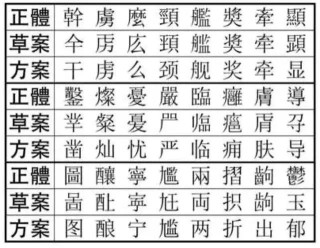 正體 幹 虜 麼 頸 艦 獎 牽 顯
草案 庅 頚 牽 顕
方案 干 虏 么 颈 舰 奖 牵 显
正體 鑿 燦 憂 嚴 臨 癰 膚 導
草案 粲 严
方案 凿 灿 忧 严 临 痈 肤 导
正體 圖 釀 寧 尷 兩 摺 齣 鬱
草案 啚 両 玉
方案 图 酿 宁 尴 两 折 出 郁